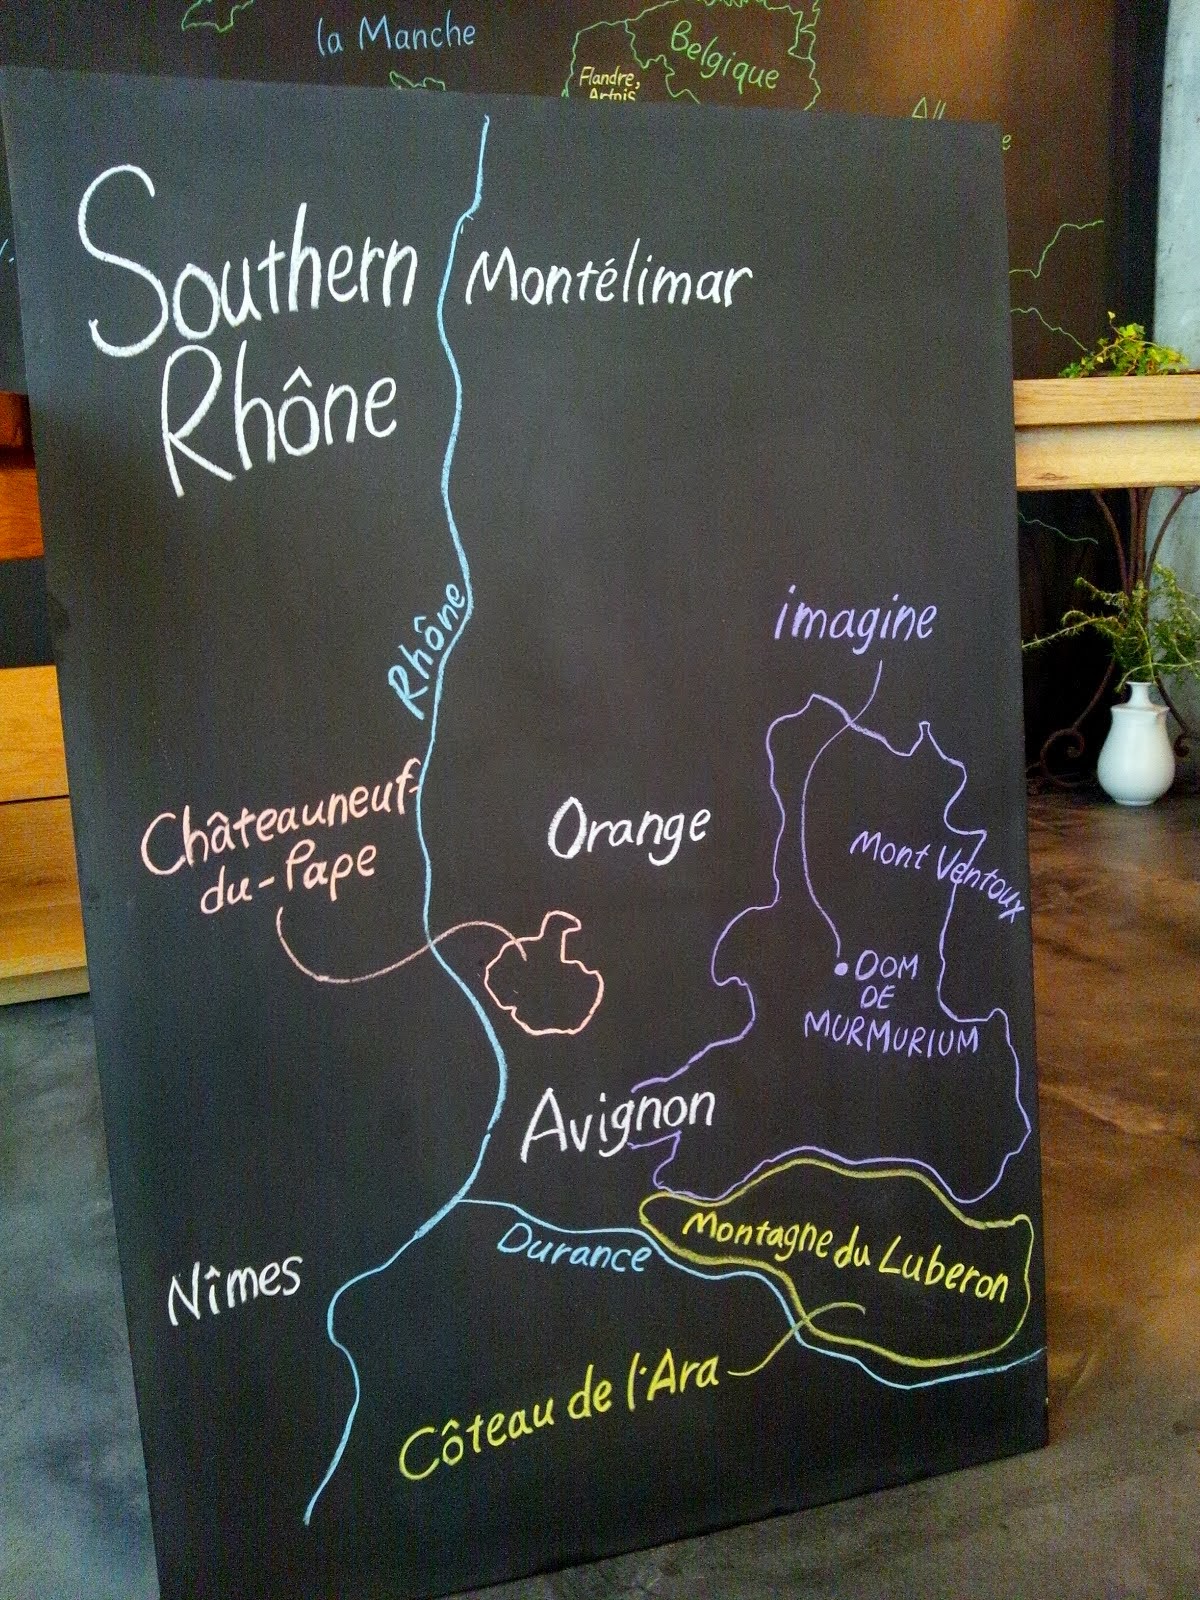 la Manche
Belgique
Flandre,
Artois
Southern
Rhône
Montélimar
Rhône
imagine
Châteauneuf-
du-Pape
Orange
Mont Ventoux
DOM
DE
MURMURIUM
Avignon
Durance
Montagne du Luberon
Nîmes
Côteau de l'Ara